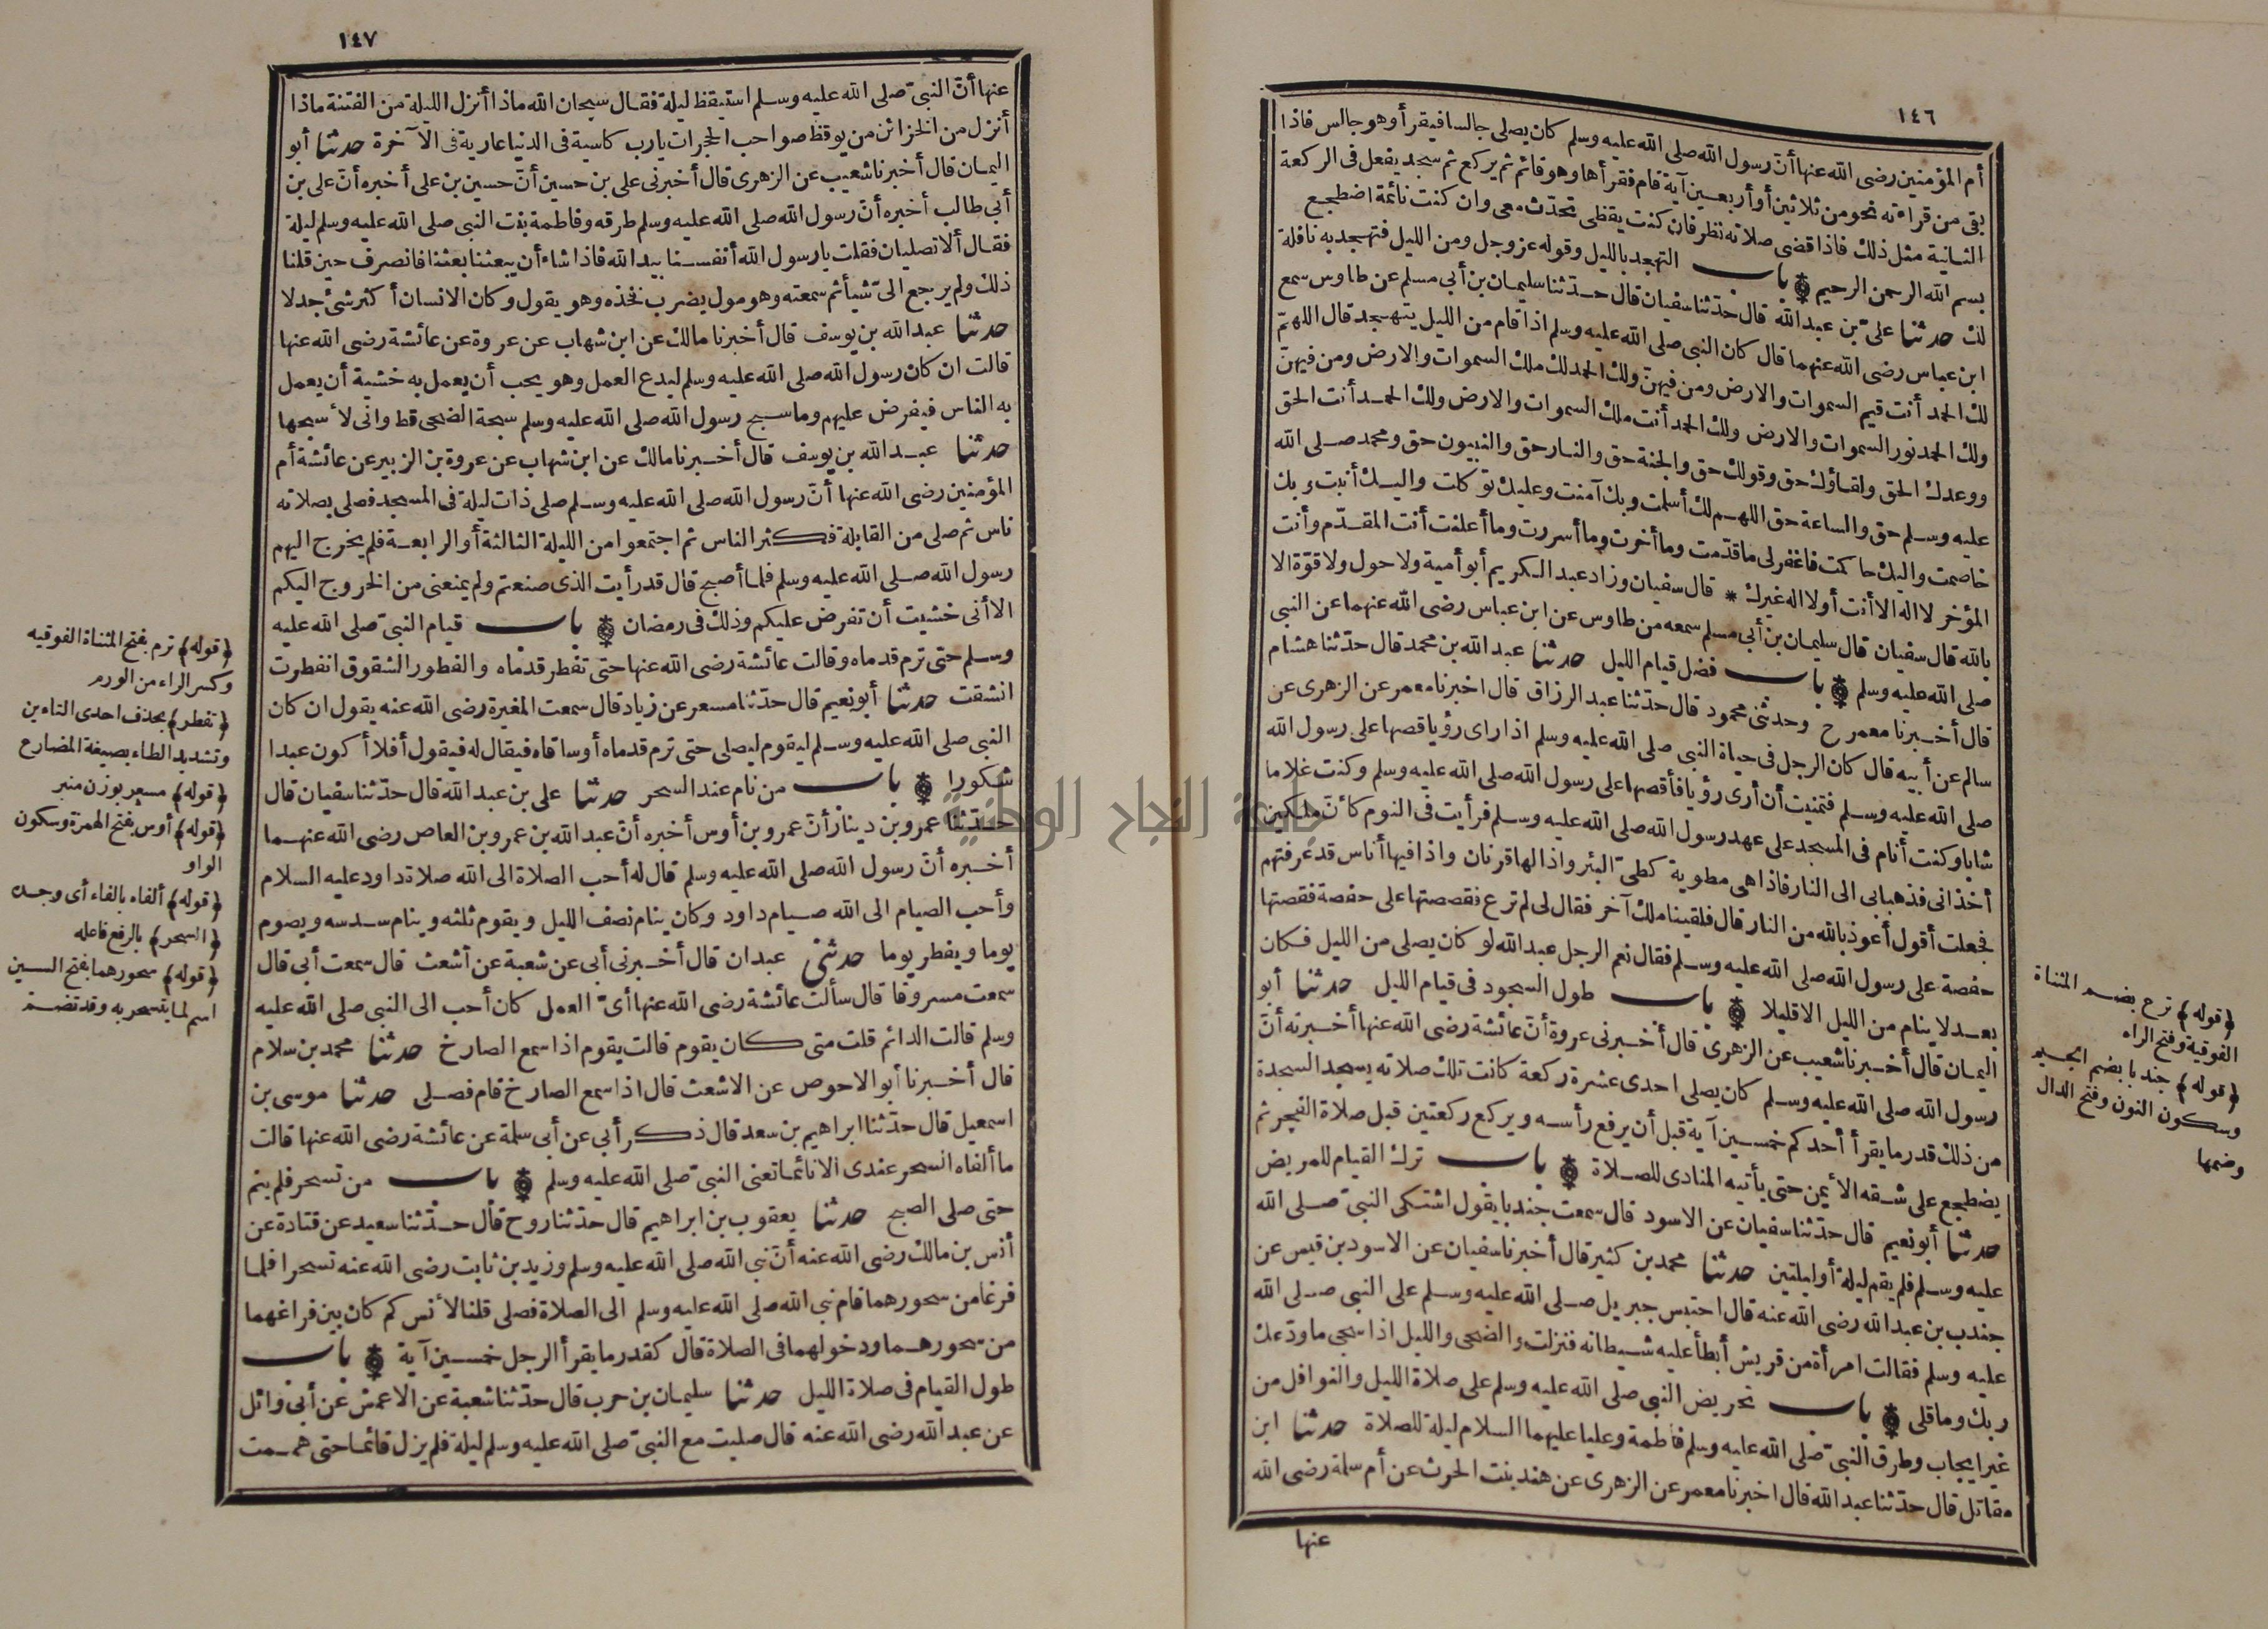 ١٤٦
أم المؤمنين رضى الله عنها أنّ رسول الله صلى الله عليه وسلم كان يصلى جالسا فيقرأ وهو جالس فاذا
بقى من قراءته نحو من ثلاثين أو أربعين آية قام فقرأها وهو قائم ثم يركع ثم سجد يفعل فى الركعة
الثانية مثل ذلك فاذا قضى صلاته نظر فان كنت يقظى تحدّث معى وان كنت نائمة اضطجع
بسم الله الرحمن الرحيم باب التهجد بالليل وقوله عز وجل ومن الليل فتهجد به نافلة
لك حدثنا علىّ بن عبد الله قال حدّثنا سفيان قال حدّثنا سليمان بن أبى مسلم عن طاوس سمع
ابن عباس رضى الله عنهما قال كان النبى صلى الله عليه وسلم اذا قام من الليل يتهجد قال اللهمّ
لك الحمد أنت قيم السموات والارض ومن فيهنّ ولك الحمد لك ملك السموات والارض ومن فيهنّ
ولك الحمد نور السموات والارض ولك الحمد أنت ملك السموات والارض ولك الحمد أنت الحق
ووعدك الحق ولقاؤك حق وقولك حق والجنة حق والنار حق والنبيون حق ومحمد صلى الله
عليه وسلم حق والساعة حق اللهم لك أسلمت وبك آمنت وعليك توكلت واليك أنبت وبك
خاصمت واليك حاكمت فاغفر لى ما قدّمت وما أخرت وما أسررت وما أعلنت أنت المقدّم وأنت
المؤخر لا اله الا أنت أو لا اله غيرك * قال سفيان وزاد عبد الكريم أبو أمية ولا حول ولا قوّة الا
بالله قال سفيان قال سليمان بن أبى مسلم سمعه من طاوس عن ابن عباس رضى الله عنهما عن النبى
صلى الله عليه وسلم باب فضل قيام الليل حدثنا عبد الله بن محمد قال حدّثنا هشام
قال أخبرنا معمر ح وحدثنى محمود قال حدّثنا عبد الرزاق قال اخبرنا معمر عن الزهرى عن
سالم عن أبيه قال كان الرجل فى حياة النبى صلى الله عليه وسلم اذا راى رؤيا قصها على رسول الله
صلى الله عليه وسلم فتمنيت أن أرى رؤيا فأقصها على رسول الله صلى الله عليه وسلم وكنت غلاما
شابا وكنت أنام فى المسجد على عهد رسول الله صلى الله عليه وسلم فرأيت فى النوم كأنّ ملكين
أخذانى فذهبا بى الى النار فاذا هى مطوية كطىّ البئر واذا لها قرنان واذا فيها أناس قد عرفتهم
فجعلت أقول أعوذ بالله من النار قال فلقينا ملك آخر فقال لى لم ترع فقصصتها على حفصة فقصتها
حفصة على رسول الله صلى الله عليه وسلم فقال نعم الرجل عبد الله لو كان يصلى من الليل فكان
بعد لا ينام من الليل الا قليلا باب طول السجود فى قيام الليل حدثنا أبو
اليمان قال أخبرنا شعيب عن الزهرى قال أخبرنى عروة أنّ عائشة رضى الله عنها أخبرته أنّ
رسول الله صلى الله عليه وسلم كان يصلى احدى عشرة ركعة كانت تلك صلاته يسجد السجدة
من ذلك قدر ما يقرأ أحدكم خمسين آية قبل أن يرفع رأسه ويركع ركعتين قبل صلاة الفجر ثم
يضطجع على شقه الأيمن حتى يأتيه المنادى للصلاة باب ترك القيام للمريض
حدثنا أبو نعيم قال حدّثنا سفيان عن الاسود قال سمعت جندبا يقول اشتكى النبىّ صلى الله
عليه وسلم فلم يقم ليلة أو ليلتين حدثنا محمد بن كثير قال أخبرنا سفيان عن الاسود بن قيس عن
جندب بن عبد الله رضى الله عنه قال احتبس جبريل صلى الله عليه وسلم على النبى صلى الله
عليه وسلم فقالت امرأة من قريش أبطأ عليه شيطانه فنزلت والضحى والليل اذا سجى ما ودّعك
ربك وما قلى باب تحريض النبى صلى الله عليه وسلم على صلاة الليل والنوافل من
غير ايجاب وطرق النبىّ صلى الله عليه وسلم فاطمة وعليا عليهما السلام ليلة للصلاة حدثنا ابن
مقاتل قال حدّثنا عبد الله قال اخبرنا معمر عن الزهرى عن هند بنت الحرث عن أم سلمة رضى الله
عنها
﴿قوله﴾ ترع بضم المثناة
الفوقية وفتح الراء
﴿قوله﴾ جندبا بضم الجيم
وسكون النون وفتح الدال
وضمها
١٤٧
عنها أنّ النبىّ صلى الله عليه وسلم استيقظ ليلة فقال سبحان الله ماذا أنزل الليلة من الفتنة ماذا
أنزل من الخزائن من يوقظ صواحب الحجرات يارب كاسية فى الدنيا عارية فى الآخرة حدثنا أبو
اليمان قال أخبرنا شعيب عن الزهرى قال أخبرنى على بن حسين أنّ حسين بن على أخبره أنّ على بن
أبى طالب أخبره أنّ رسول الله صلى الله عليه وسلم طرقه وفاطمة بنت النبى صلى الله عليه وسلم ليلة
فقال ألا تصليان فقلت يا رسول الله أنفسنا بيد الله فاذا شاء أن يبعثنا بعثنا فانصرف حين قلنا
ذلك ولم يرجع الىّ شيأ ثم سمعته وهو مول يضرب فخذه وهو يقول وكان الانسان أكثر شئ جدلا
حدثنا عبد الله بن يوسف قال أخبرنا مالك عن ابن شهاب عن عروة عن عائشة رضى الله عنها
قالت ان كان رسول الله صلى الله عليه وسلم ليدع العمل وهو يحب أن يعمل به خشية أن يعمل
به الناس فيفرض عليهم وما سبح رسول الله صلى الله عليه وسلم سبحة الضحى قط وانى لأسبحها
حدثنا عبد الله بن يوسف قال أخبرنا مالك عن ابن شهاب عن عروة بن الزبير عن عائشة أم
المؤمنين رضى الله عنها أنّ رسول الله صلى الله عليه وسلم صلى ذات ليلة فى المسجد فصلى بصلاته
ناس ثم صلى من القابلة فكثر الناس ثم اجتمعوا من الليلة الثالثة أو الرابعة فلم يخرج اليهم
رسول الله صلى الله عليه وسلم فلما أصبح قال قد رأيت الذى صنعتم ولم يمنعنى من الخروج اليكم
الا أنى خشيت أن تفرض عليكم وذلك فى رمضان باب قيام النبىّ صلى الله عليه
وسلم حتى ترم قدماه وقالت عائشة رضى الله عنها حتى تفطر قدماه والفطور الشقوق انفطرت
انشقت حدثنا أبو نعيم قال حدّثنا مسعر عن زياد قال سمعت المغيرة رضى الله عنه يقول ان كان
النبى صلى الله عليه وسلم ليقوم ليصلى حتى ترم قدماه أو ساقاه فيقال له فيقول أفلا أكون عبدا
شكورا باب من نام عند السحر حدثنا على بن عبد الله قال حدّثنا سفيان قال
حدّثنا عمرو بن دينار أنّ عمرو بن أوس أخبره أنّ عبد الله بن عمرو بن العاص رضى الله عنهما
أخبره أنّ رسول الله صلى الله عليه وسلم قال له أحب الصلاة الى الله صلاة داود عليه السلام
وأحب الصيام الى الله صيام داود وكان ينام نصف الليل ويقوم ثلثه وينام سدسه ويصوم
يوما ويفطر يوما حدثنى عبدان قال أخبرنى أبى عن شعبة عن أشعث قال سمعت أبى قال
سمعت مسروقا قال سألت عائشة رضى الله عنها أىّ العمل كان أحب الى النبى صلى الله عليه
وسلم قالت الدائم قلت متى كان يقوم قالت يقوم اذا سمع الصارخ حدثنا محمد بن سلام
قال أخبرنا أبو الاحوص عن الاشعث قال اذا سمع الصارخ قام فصلى حدثنا موسى بن
اسمعيل قال حدّثنا ابراهيم بن سعد قال ذكر أبى عن أبى سلمة عن عائشة رضى الله عنها قالت
ما ألفاه السحر عندى الا نائما تعنى النبىّ صلى الله عليه وسلم باب من تسحر فلم ينم
حتى صلى الصبح حدثنا يعقوب بن ابراهيم قال حدّثنا روح قال حدّثنا سعيد عن قتادة عن
أنس بن مالك رضى الله عنه أنّ نبى الله صلى الله عليه وسلم وزيد بن ثابت رضى الله عنه تسحرا فلما
فرغا من سحورهما قام نبى الله صلى الله عليه وسلم الى الصلاة فصلى قلنا لأنس كم كان بين فراغهما
من سحورهما ودخولهما فى الصلاة قال كقدر ما يقرأ الرجل خمسين آية باب
طول القيام فى صلاة الليل حدثنا سليمان بن حرب قال حدّثنا شعبة عن الاعمش عن أبى وائل
عن عبد الله رضى الله عنه قال صليت مع النبىّ صلى الله عليه وسلم ليلة فلم يزل قائما حتى هممت
﴿قوله﴾ ترم بفتح المثناة الفوقيه
وكسر الراء من الورم
﴿تفطر﴾ بحذف احدى التاءين
وتشديد الطاء بصيغة المضارع
﴿قوله﴾ مسعر بوزن منبر
﴿قوله﴾ أوس بفتح الهمزة وسكون
الواو
﴿قوله﴾ ألفاه بالفاء أى وجده
﴿السحر﴾ بالرفع فاعله
﴿قوله﴾ سحورهما بفتح السين
اسم لما يتسحر به وقد تضم
جامعة النجاح الوطنية